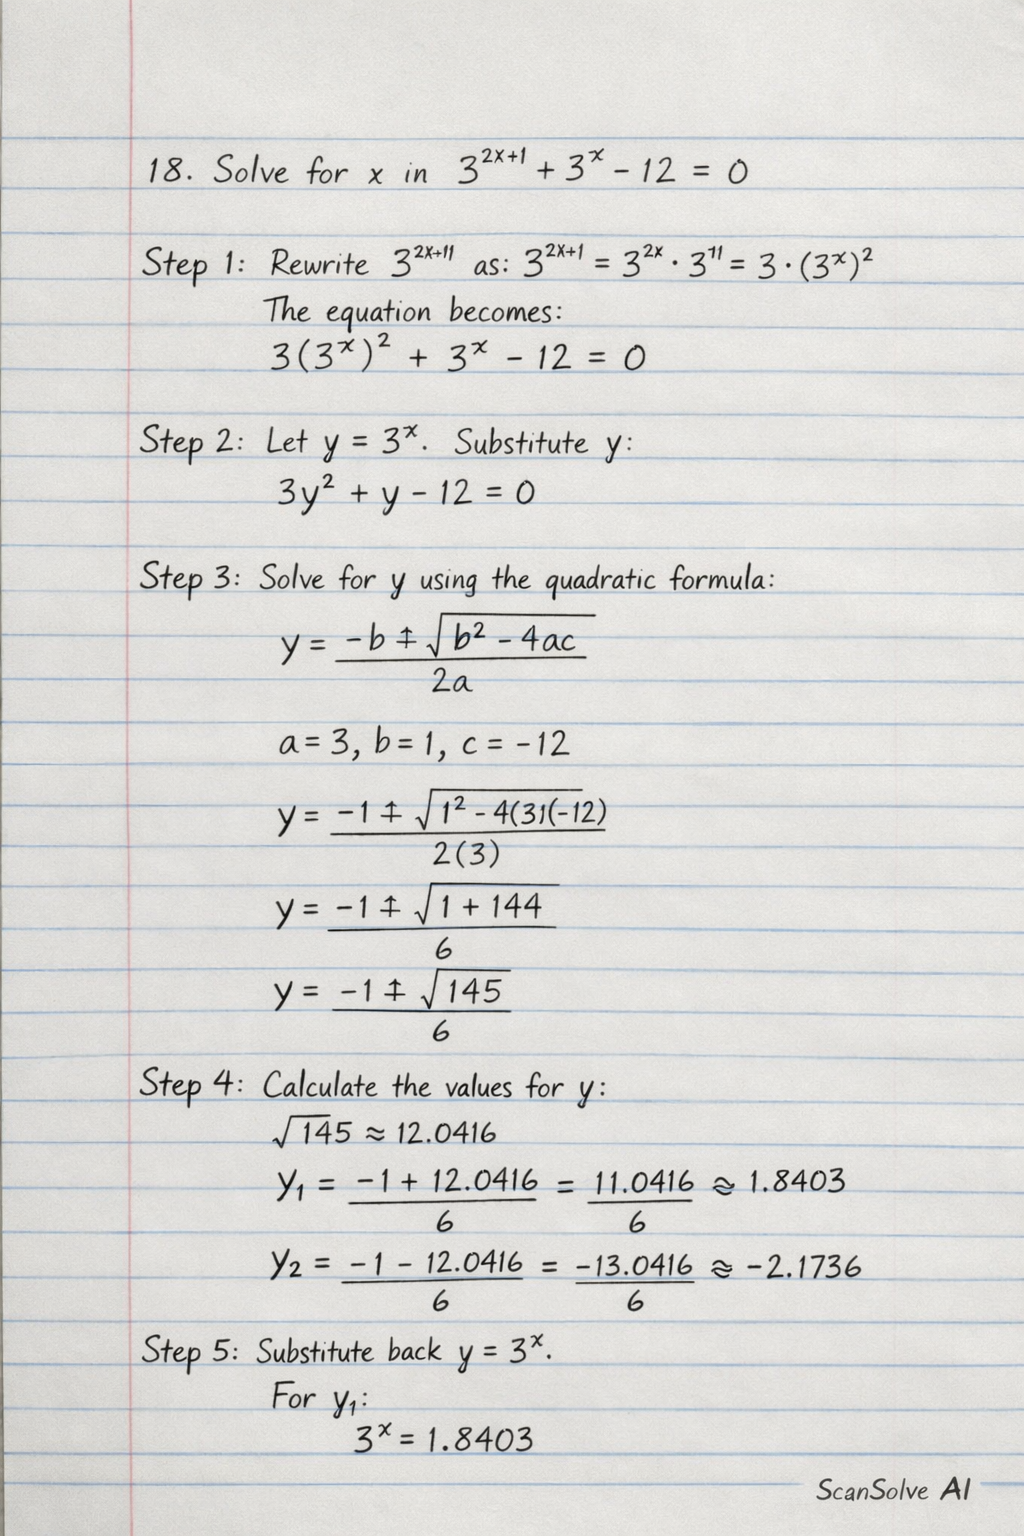 18. Solve for x in 3^{2x+1} + 3^x - 12 = 0
Step 1: Rewrite 3^{2x+11} as: 3^{2x+1} = 3^{2x} · 3^{11} = 3 · (3^x)^2
The equation becomes:
3(3^x)^2 + 3^x - 12 = 0
Step 2: Let y = 3^x. Substitute y:
3y^2 + y - 12 = 0
Step 3: Solve for y using the quadratic formula:
y = -b ± √b^2 - 4ac
2a
a = 3, b = 1, c = -12
y = -1 ± √1^2 - 4(31(-12)
2(3)
y = -1 ± √1 + 144
6
y = -1 ± √145
6
Step 4: Calculate the values for y:
√145 ≈ 12.0416
y_1 = -1 + 12.0416 = 11.0416 ≈ 1.8403
6 6
y_2 = -1 - 12.0416 = -13.0416 ≈ -2.1736
6 6
Step 5: Substitute back y = 3^x.
For y_1:
3^x = 1.8403
ScanSolve AI